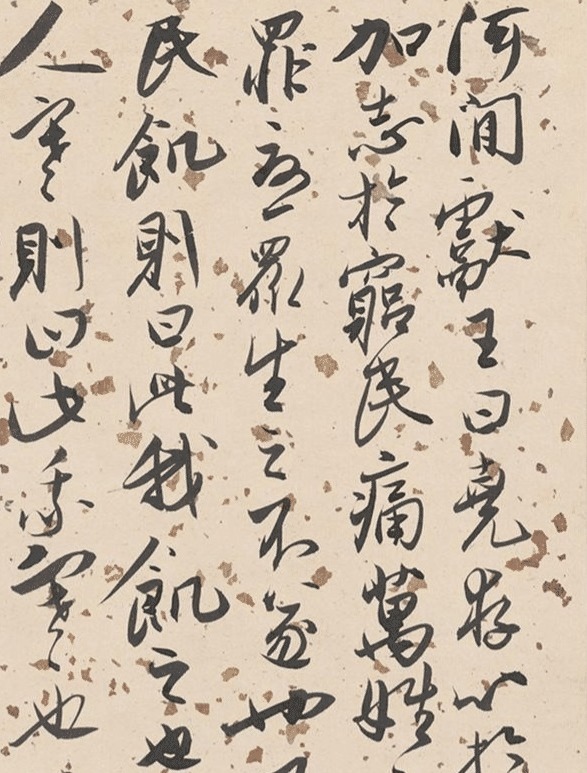 河間獻王曰堯存心於
加志於窮民痛萬姓
罪憂眾生之不遂也
民飢則曰此我飢之也
人寒則曰此我寒也